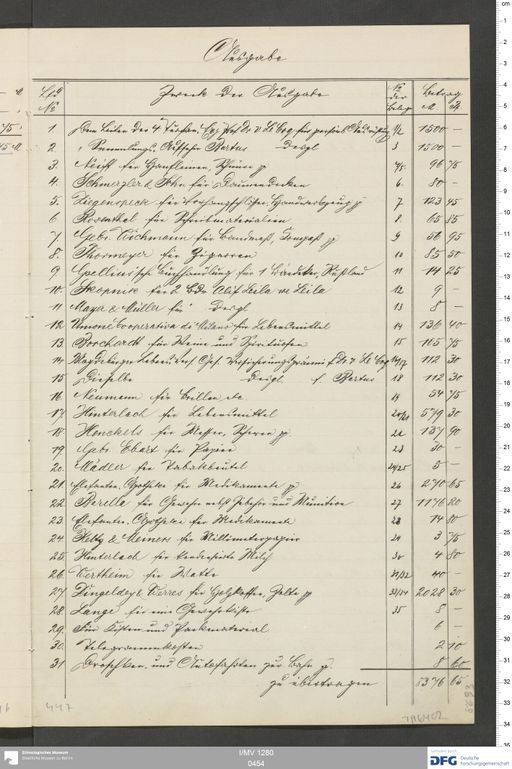 Ausgabe
Lfd No Zweck der Ausgabe No der Beleg Betrag M. Pf.
1 Dem Leiter der Expedition v. Le Coq für persönl. Ausrüstung 1/2 1500 —
2 " Sammlungs-Aufseher Bartus Desgl. 3 1500 —
3. für Hanfleinen, Schnüre pp 4/5 96 75
4. Schmerzler & Sohn für 2 Daunendecken 6. 80 —
5. Ziegenspeck für Vorhangschlösser, Handwerkzeug pp 7 123 45
6 Rosenthal für Schreibmaterialien 8 65 85
7 Gebr. Wichmann für Bandmaß, Kompaß pp 9 66 95
8. Thormeyer für Zigarren 10 85 50
9 Buchhandlung für 1 Bädeker, Rußland 11 14 25
10. Skopnik für 2 Bde Alif Leila we Leila 12 9 —
11 Mayer & Müller für Desgl 13 8 —
12. Unione Cooperativa di Milano für Lebensmittel 14 136 40
13 Borchardt für Weine und Spirituosen 15 115 75
14 Magdeburger Lebens-Vers. Ges. Versicherungsprämie f. Dr. v. Le Coq 16/17 112 30
15 Dieselbe Desgl f. Bartus 18 112 30
16 Neumann für Brillen etc 19 54 75
17 Hinterlach für Lebensmittel 20/21 579 30
18 Henckels für Messer, Scheren pp. 22 137 90
19 Gebr. Ebart für Papier 23 30 —
20. Mädler für Tabakbeutel 24/25 5 —
21 Elefanten-Apotheke für Medikamente 26 270 65
22 Barella für Gewehre nebst Zubehör und Munition 27 1176 20
23. Elefanten-Apotheke für Medikamente 28 14 80
24. & Meinen für Millimeterpapier 29 3 75
25. Hinterlach für kondensirte Milch 30 4 80
26 Wertheim für Watte 31/32 40 —
27. Dingeldey & Werres für Holzkoffer, Zelte pp 33/34 2028 30
28 Lange für eine Gewehrkiste 35 5 —
29. Für Kisten und Packmaterial 6 —
30. Telegrammkosten 2 10
31 Droschken- und Autofahrten zur Bahn pp. 8 60
zu übertragen 8376 65
447
I/MV 1280
0454
Ethnologisches Museum
Staatliche Museen zu Berlin
DFG Deutsche Forschungsgemeinschaft